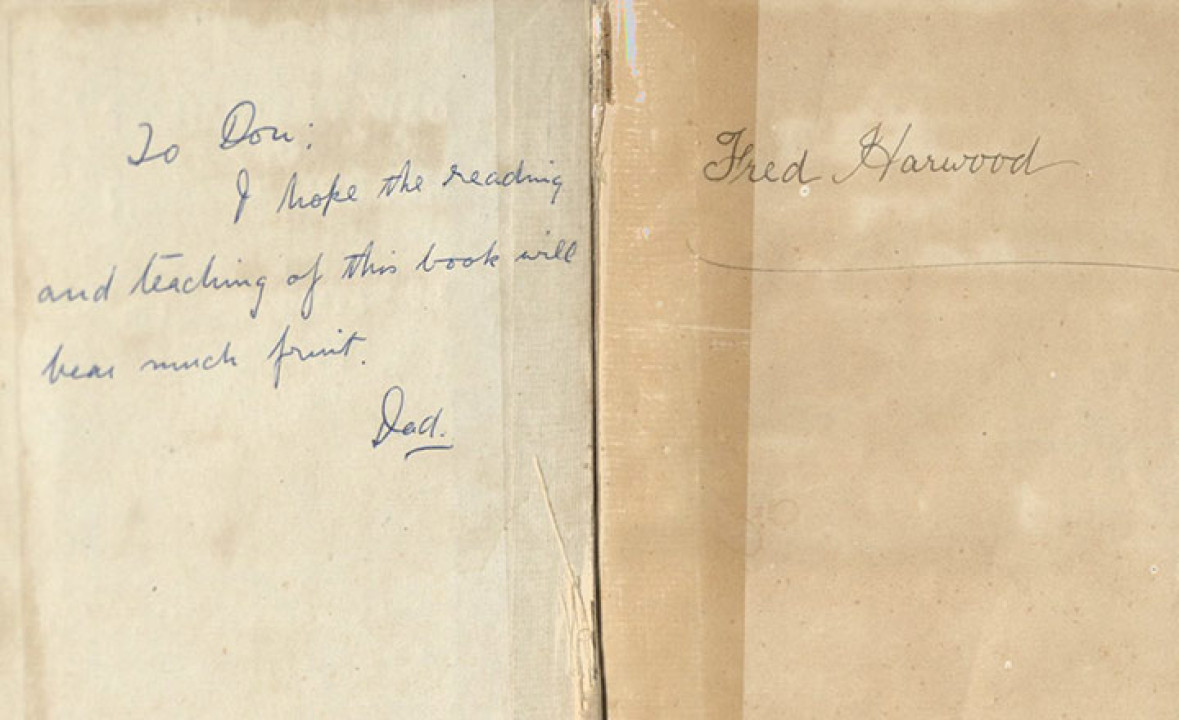 To Don:
I hope the reading
and teaching of this book will
bear much fruit.
Dad.
Fred Harwood